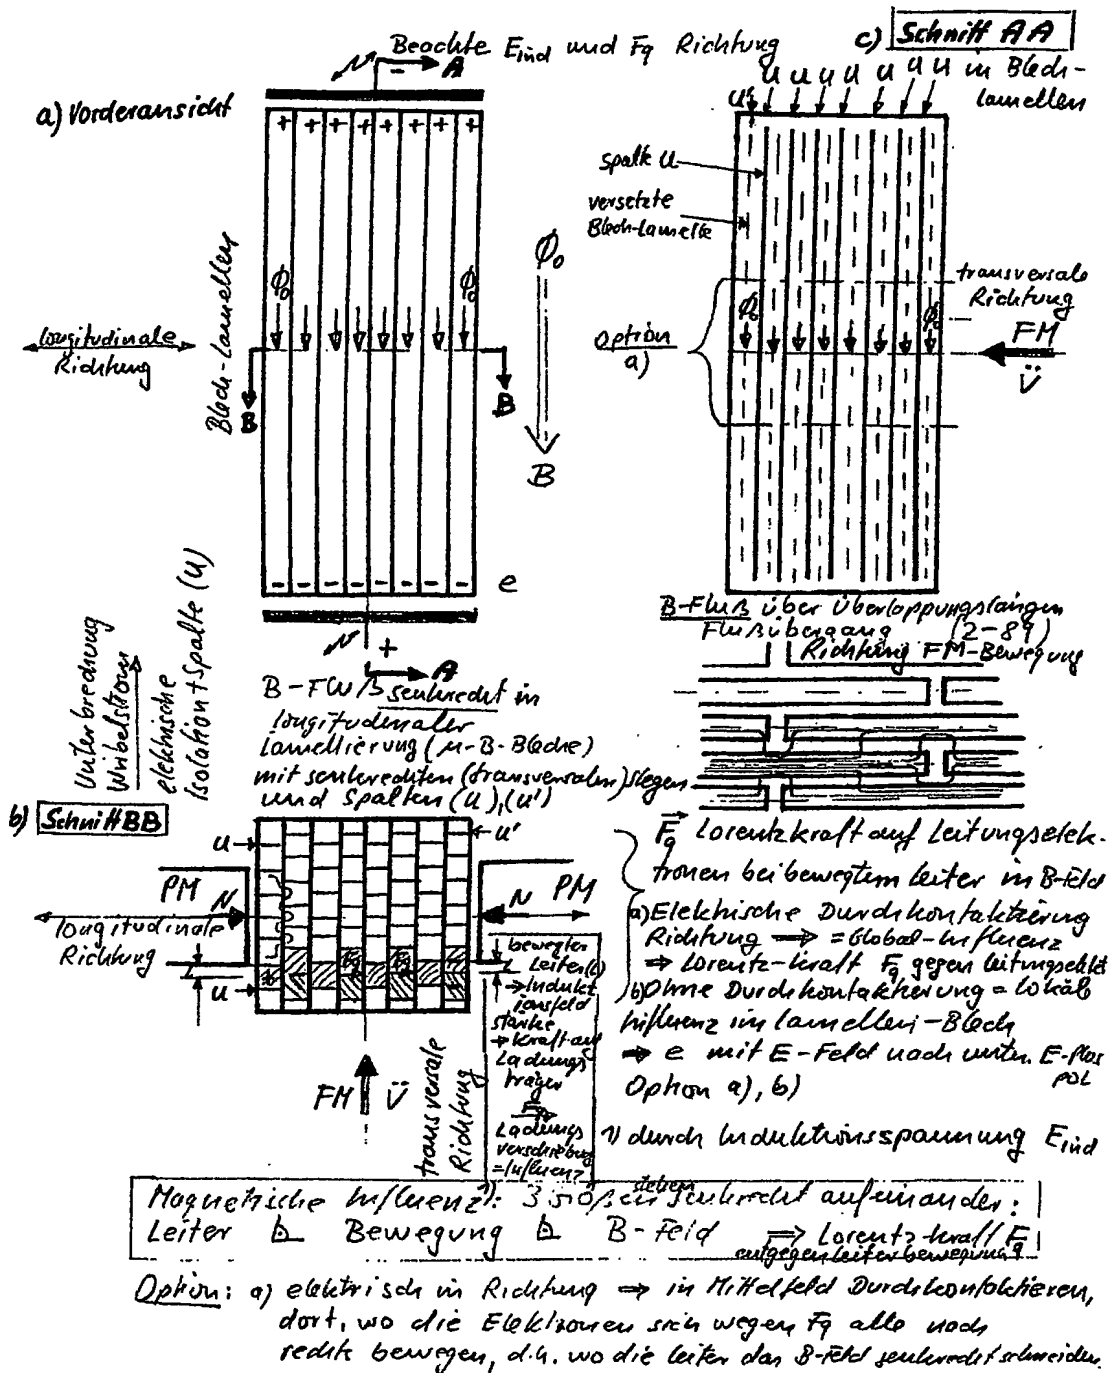 Beachte Eind und Fq Richtung
c) Schnitt AA
- A
u u u u u u u in Blech-
lamellen
u'
a) Vorderansicht
+ + + + + + + +
spalte u
versetzte
Blech-lamelle
Φ₀
Φ₀ Φ₀
Blech-Lamellen
longitudinale
Richtung
B B
B
transversale
Richtung
Option
a)
Φ₀ Φ₀
FM
V̈
- - - - - - - -
e
+
A
Unterbrechung
Wirbelstrom
elektrische
Isolation+Spalte (u)
B-Fluß senkrecht in
longitudinaler
Lamellierung (µ-B-Bleche)
mit senkrechten (transversalen) stegen
und Spalten (u), (u')
B-Fluß über Überlappungslängen
Flußübergang (2-89)
Richtung FM-Bewegung
b) Schnitt BB
u u'
PM N N PM
longitudinale
Richtung
L L
u
FM V̈
transversale
Richtung
bewegter
Leiter(L)
→ Indukt
ionsfeld
stärke
→ Kraft auf
Ladungs
träger
Fq
Ladungs
verschiebung
=Influenz
Fq Lorentzkraft auf Leitungselek-
tronen bei bewegtem Leiter in B-Feld
a) Elektrische Durchkontaktierung
Richtung ⇒ = Global-Influenz
⇒ Lorentz-Kraft Fq gegen Leitungselekt
b) Ohne Durchkontaktierung = lokale
Influenz im lamellen-Blech
⇒ e mit E-Feld nach unten. E-Plus
POL
Option a), b)
1) durch Induktionsspannung Eind
Magnetische Influenz¹⁾: 3 Größen stehen senkrecht aufeinander:
Leiter ⊾ Bewegung ⊾ B-Feld ⇒ Lorentz-kraft Fq
entgegen leiterbewegung
Option: a) elektrisch in Richtung ⇒ in Mittelfeld Durchkontaktieren,
dort, wo die Elektronen sich wegen Fq alle nach
rechts bewegen, d.h. wo die leiter das B-Feld senkrecht schneiden.